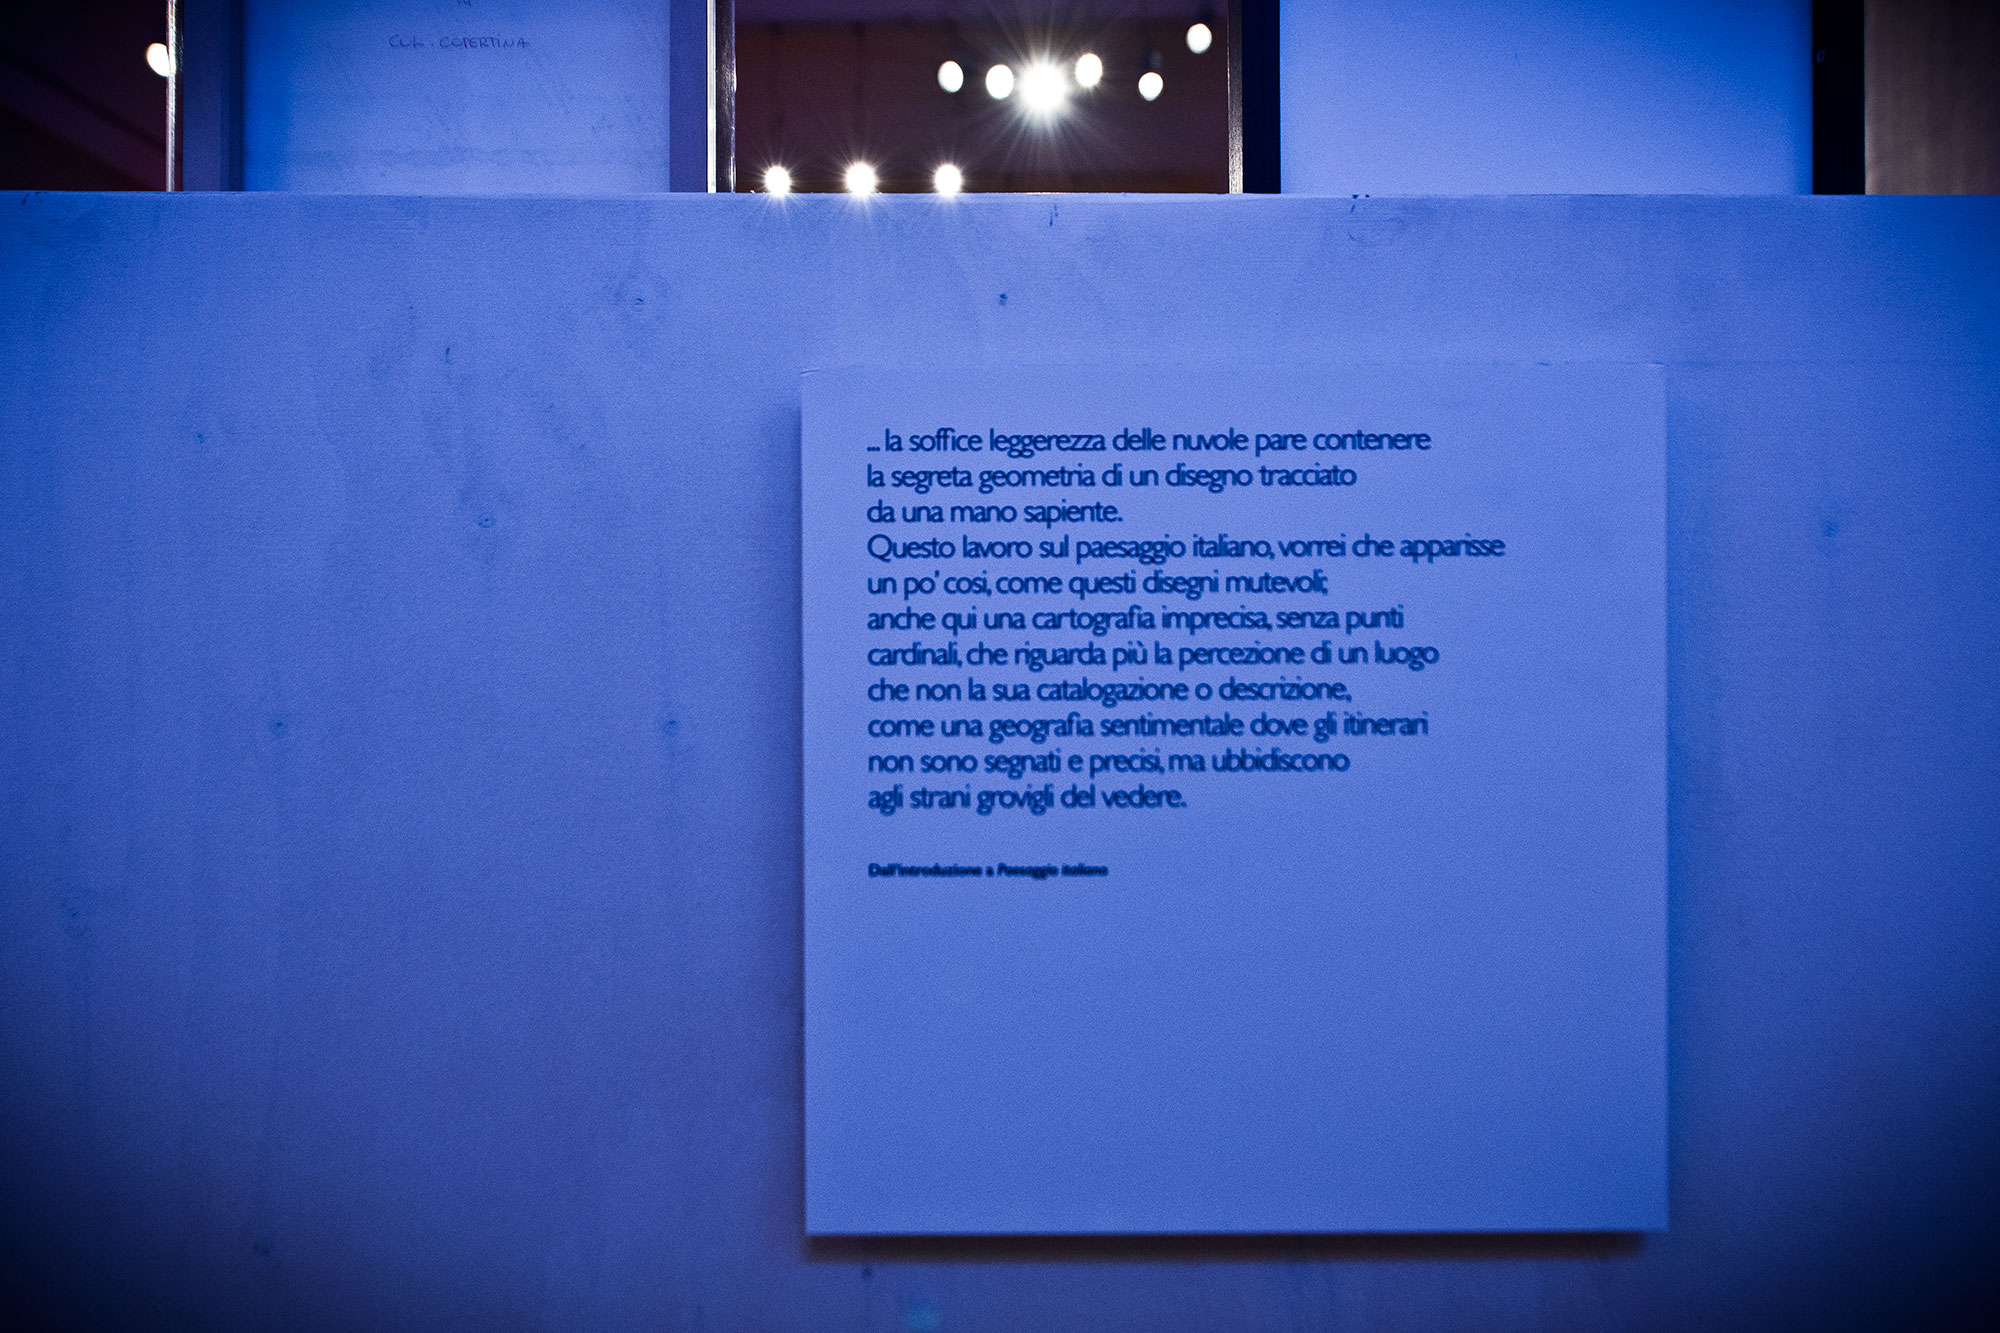 CUL. COPERTINA
... la soffice leggerezza delle nuvole pare contenere
la segreta geometria di un disegno tracciato
da una mano sapiente.
Questo lavoro sul paesaggio italiano, vorrei che apparisse
un po' cosi, come questi disegni mutevoli;
anche qui una cartografia imprecisa, senza punti
cardinali, che riguarda più la percezione di un luogo
che non la sua catalogazione o descrizione,
come una geografia sentimentale dove gli itinerari
non sono segnati e precisi, ma ubbidiscono
agli strani grovigli del vedere.
Dall'introduzione a Paesaggio italiano